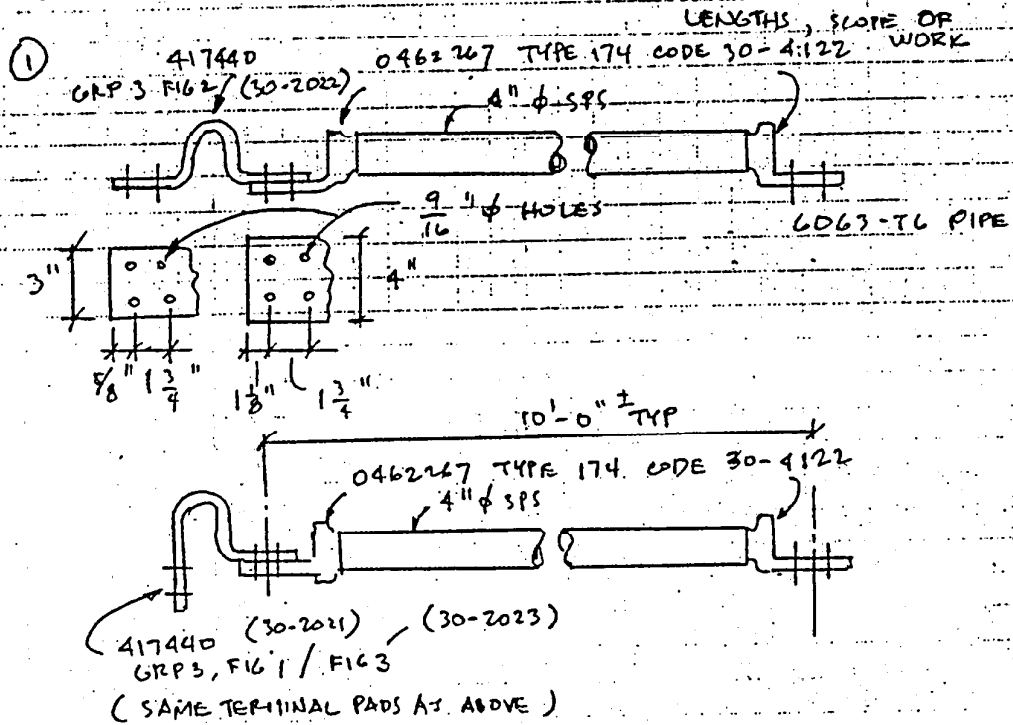 LENGTHS, SCOPE OF WORK
①
417440
GRP 3 FIG 2 / (30-2022)
0462267 TYPE 174 CODE 30-4122
4" ϕ SPS
9/16" ϕ HOLES
6063-T6 PIPE
3"
4"
5/8" 1 3/4"
1 1/8" 1 3/4"
10'-0" ± TYP
0462267 TYPE 174 CODE 30-4122
4" ϕ SPS
417440 (30-2021) (30-2023)
GRP 3, FIG 1 / FIG 3
(SAME TERMINAL PADS AS ABOVE)